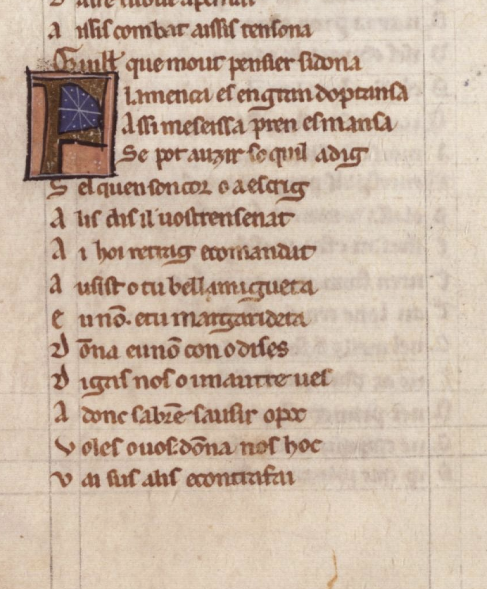 A issis combat aissis tensona
Guillē que mout pensier sidona
Flamenca es en gran doptansa
Assi meteissa pren esmansa
Se pot auzir so quil a dig
S el quen son cor o a escrig
A lis dis il uostren senat
A i hoi retrag e comandat
A usist o tu bell amigueta
e u nō. e tu margarideta
D ōna eu nō con o dises
D igas nos o un autre ues
A donc sabrē sausir o pox
V oles o uos. dōna nos hoc
V ai sus alis e contrafai